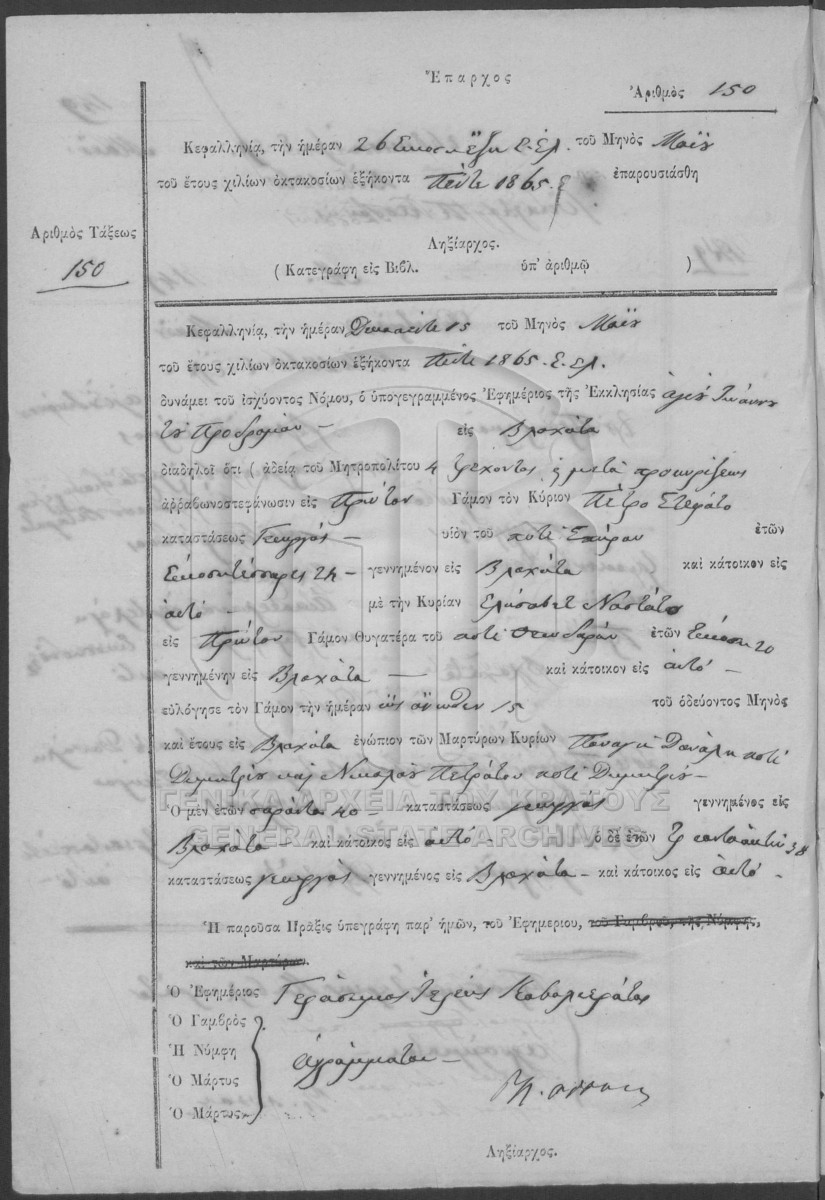 Ἔπαρχος
Ἀριθμὸς 150
Κεφαλληνίᾳ, τὴν ἡμέραν 26 Εικοσιέξη Ε.Ελ. τοῦ Μηνὸς Μαΐου
τοῦ ἔτους χιλίων ὀκτακοσίων ἑξήκοντα Πέντε 1865 ἐπαρουσιάσθη
Ἀριθμὸς Τάξεως
150
Ληξίαρχος.
( Κατεγράφη εἰς Βιβλ. ὑπ' ἀριθμῷ )
Κεφαλληνίᾳ, τὴν ἡμέραν Δεκαπέντε 15 τοῦ Μηνὸς Μαΐου
τοῦ ἔτους χιλίων ὀκτακοσίων ἑξήκοντα Πέντε 1865. Ε. Ελ.
δυνάμει τοῦ ἰσχύοντος Νόμου, ὁ ὑπογεγραμμένος Ἐφημέριος τῆς Ἐκκλησίας ἁγίου Ἰωάννου
του Προδρόμου – εἰς Βλαχάτα
διαδηλοῖ ὅτι ἀδείᾳ τοῦ Μητροπολίτου 4 τρέχοντος μετὰ προκηρύξεως
ἀρραβωνοστεφάνωσιν εἰς Πρῶτον Γάμον τὸν Κύριον Πέτρο Στεφάτο
καταστάσεως Γεωργός – υἱὸν τοῦ ποτὲ Σπύρου ἐτῶν
Εικοσιτέσσαρες 24 – γεννημένον εἰς Βλαχάτα καὶ κάτοικον εἰς
αυτό – μὲ τὴν Κυρίαν Ελισάβετ
εἰς Πρῶτον Γάμον Θυγατέρα τοῦ ποτὲ Θεοδωράν ἐτῶν Εικοσι 20
γεννημένην εἰς Βλαχάτα – καὶ κάτοικον εἰς αυτό –
εὐλόγησε τὸν Γάμον τὴν ἡμέραν ὡς άνωθεν 15 τοῦ ὁδεύοντος Μηνὸς
καὶ ἔτους εἰς Βλαχάτα ἐνώπιον τῶν Μαρτύρων Κυρίων Παναγή ποτέ
Δημητρίου καὶ Νικολάου Πετράτου ποτέ Δημητρίου –
ΓΕΝΙΚΑ ΑΡΧΕΙΑ ΤΟΥ ΚΡΑΤΟΥΣ
Ὁ μὲν ἐτῶν σαράντα 40 – καταστάσεως γεωργός γεννημένος εἰς
GENERAL STATE ARCHIVES
Βλαχάτα – καὶ κάτοικος εἰς αυτό – ὁ δὲ ἐτῶν Τριανταοκτώ 38
καταστάσεως γεωργός γεννημένος εἰς Βλαχάτα – καὶ κάτοικος εἰς αυτό –
Ἡ παροῦσα Πρᾶξις ὑπεγράφη παρ' ἡμῶν, τοῦ Ἐφημερίου, τοῦ Γαμβροῦ, τῆς Νύμφης,
καὶ τῶν Μαρτύρων.
Ὁ Ἐφημέριος Γεράσιμος Ιερεύς Καβαλιεράτος
Ὁ Γαμβρὸς
Ἡ Νύμφη
αγράμματοι –
Ὁ Μάρτυς
Ὁ Μάρτυς
Ληξίαρχος.